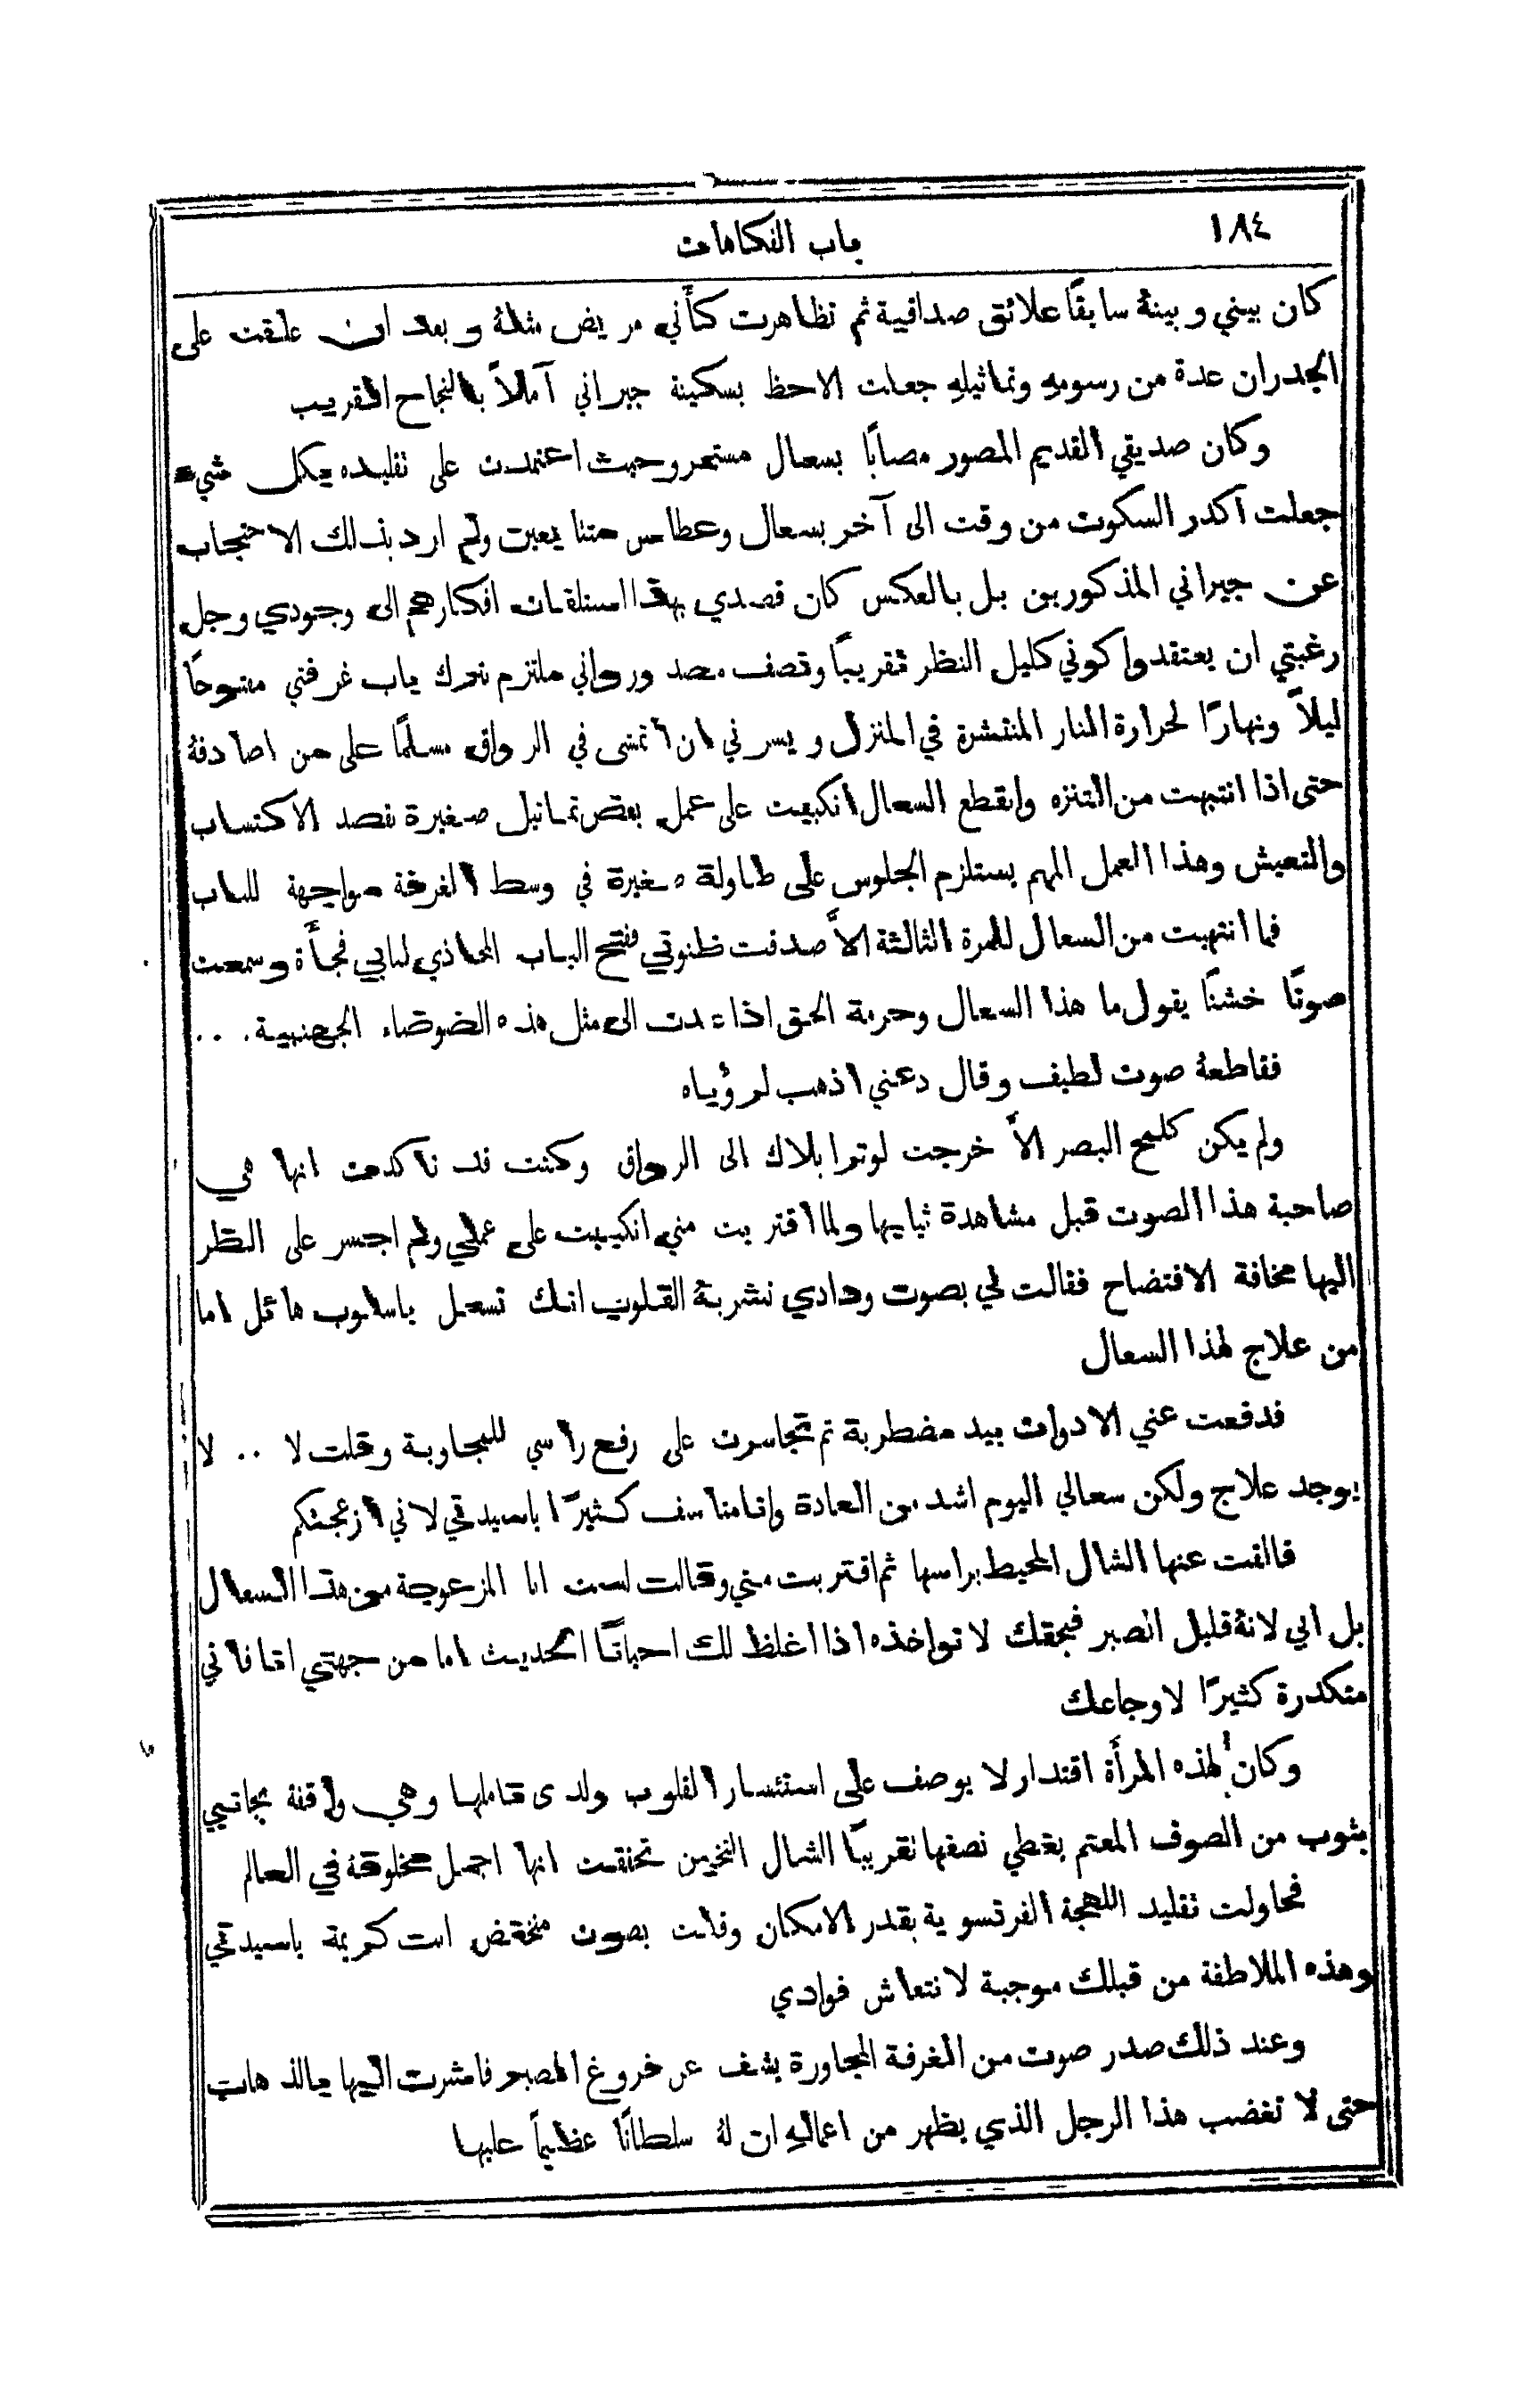 ١٨٤
باب الفكاهات
كان بيني وبينهُ سابقًا علائق صداقية ثم تظاهرت كأني مريض مثلهُ وبعد ان علقت على
الجدران عدة من رسومهِ وتماثيلهِ جعلت الاحظ بسكينة جيراني آملاً بالنجاح القريب
وكان صديقي القديم المصور مصابًا بسعال مستمر وحيث اعتمدت على تقليده بكل شيء
جعلت اكدر السكوت من وقت الى آخر بسعال وعطاس متتابعين ولم ارد بذلك الاحتجاب
عن جيراني المذكورين بل بالعكس كان قصدي بهذا استلفات افكارهم الى وجودي وجل
رغبتي ان يعتقدوا كوني كليل النظر تقريبًا ونصف مصدور واني ملتزم بترك باب غرفتي مفتوحًا
ليلاً ونهارًا لحرارة النار المنتشرة في المنزل ويسرني ان اتمشى في الرواق مسلمًا على من اصادفهُ
حتى اذا انتبهت من التنزه وانقطع السعال انكبيت على عمل بعض تماثيل صغيرة بقصد الاكتساب
والتعيش وهذا العمل المهم يستلزم الجلوس على طاولة صغيرة في وسط الغرفة مواجهة للباب
فما انتهيت من السعال للمرة الثالثة الاَّ صدقت ظنوتي ففتح الباب المحاذي لبابي فجأة وسمعت
صوتًا خشنًا يقول ما هذا السعال وحرمة الحق اذا عدت الى مثل هذه الضوضاء الجهنمية . . .
فقاطعهُ صوت لطيف وقال دعني اذهب لرؤياه
ولم يكن كلمح البصر الاَّ خرجت لوترابلاك الى الرواق وكنت قد تاكدت انها هي
صاحبة هذا الصوت قبل مشاهدة ثيابها ولما اقتربت مني انكببت على عملي ولم اجسر على النظر
اليها مخافة الافتضاح فقالت لي بصوت ودادي تشربهُ القلوب انك تسعل باسلوب هائل اما
من علاج لهذا السعال
فدفعت عني الادوات بيد مضطربة ثم تجاسرت على رفع راسي للمجاوبة وقلت لا .. لا
يوجد علاج ولكن سعالي اليوم اشد من العادة وانا متاسف كثيرًا ياسيدتي لاني ازعجتكم
فالقت عنها الشال المحيط براسها ثم اقتربت مني وقالت لست انا المزعوجة من هذا السعال
بل ابي لانهُ قليل الصبر فبحقك لا تواخذه اذا اغلظ لك احيانًا الحديث اما من جهتي انا فاني
متكدرة كثيرًا لاوجاعك
وكان لهذه المرأَة اقتدار لا يوصف على استئسار القلوب ولدى تاملها وهي واقفة بجانبي
بثوب من الصوف المعتم يغطي نصفها تقريبًا الشال الثخين تحققت انها اجمل مخلوقة في العالم
فحاولت تقليد اللهجة الفرنسوية بقدر الامكان وقلت بصوت منخفض انت كريمة ياسيدتي
وهذه الملاطفة من قبلك موجبة لانتعاش فوادي
وعند ذلك صدر صوت من الغرفة المجاورة يشف عن فروغ الصبر فاشرت اليها بالذهاب
حتى لا تغضب هذا الرجل الذي يظهر من اعمالهِ ان لهُ سلطانًا عظيمًا عليها